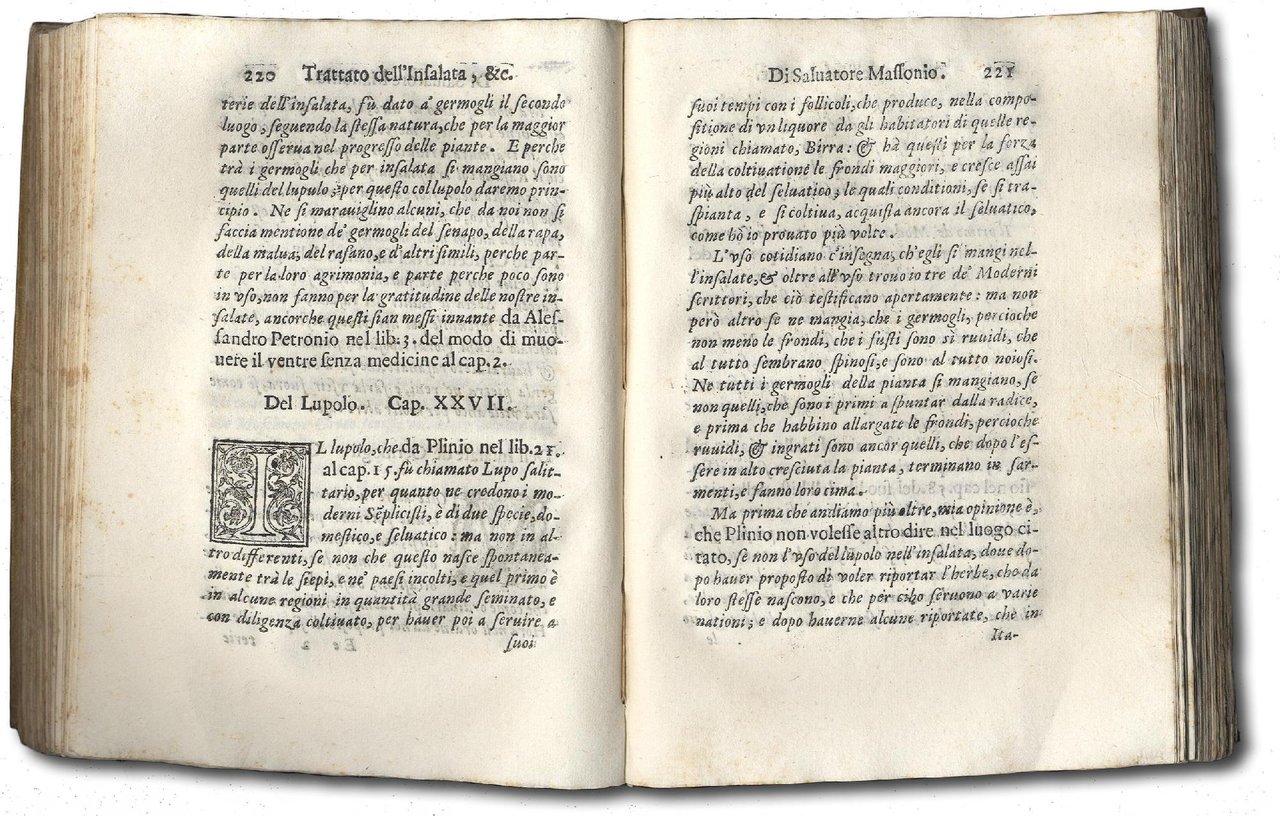 220 Trattato dell'Insalata, &c.
terie dell'insalata, fù dato a' germogli il secondo
luogo, seguendo la stessa natura, che per la maggior
parte osserua nel progresso delle piante. E perche
trà i germogli che per insalata si mangiano sono
quelli del lupulo, per questo col lupolo daremo prin-
cipio. Ne si marauiglino alcuni, che da noi non si
faccia mentione de' germogli del senapo, della rapa,
della malua, del rafano, e d'altri simili, perche par-
te per la loro agrimonia, e parte perche poco sono
in vso, non fanno per la gratitudine delle nostre in-
salate, ancorche questi sian messi innante da Ales-
sandro Petronio nel lib. 3. del modo di muo-
uere il ventre senza medicine al cap. 2.
Del Lupolo. Cap. XXVII.
IL lupolo, che da Plinio nel lib. 21.
al cap. 15. fù chiamato Lupo salit-
tario, per quanto ne credono i mo-
derni Sẽplicisti, è di due specie, do-
mestico, e seluatico: ma non in al-
tro differenti, se non che questo nasce spontanea-
mente trà le siepi, e ne' paesi incolti, e quel primo è
in alcune regioni in quantità grande seminato, e
con diligenza coltiuato, per hauer poi a seruire a
suoi
Di Saluatore Massonio. 221
suoi tempi con i follicoli, che produce, nella compo-
sitione di vn liquore da gli habitatori di quelle re-
gioni chiamato, Birra: & hà questi per la forza
della coltiuatione le frondi maggiori, e cresce assai
più alto del seluatico; le quali conditioni, se si tra-
spianta, e si coltiua, acquista ancora il seluatico,
come hò io prouato più volte.
L'vso cotidiano c'insegna, ch'egli si mangi nel-
l'insalate, & oltre all'vso trouo io tre de' Moderni
scrittori, che ciò testificano apertamente: ma non
però altro se ne mangia, che i germogli, percioche
non meno le frondi, che i fusti sono sì ruuidi, che
al tutto sembrano spinosi, e sono al tutto noiosi.
Ne tutti i germogli della pianta si mangiano, se
non quelli, che sono i primi a spuntar dalla radice,
e prima che habbino allargate le frondi, percioche
ruuidi, & ingrati sono ancor quelli, che dopo l'es-
sere in alto cresciuta la pianta, terminano in sar-
menti, e fanno loro cima.
Ma prima che andiamo più oltre, mia opinione è,
che Plinio non volesse altro dire nel luogo ci-
tato, se non l'vso del lupolo nell'insalata, doue do-
po hauer proposto di voler riportar l'herbe, che da
loro stesse nascono, e che per cibo seruono a varie
nationi; e dopo hauerne alcune riportate, che in
Ita-